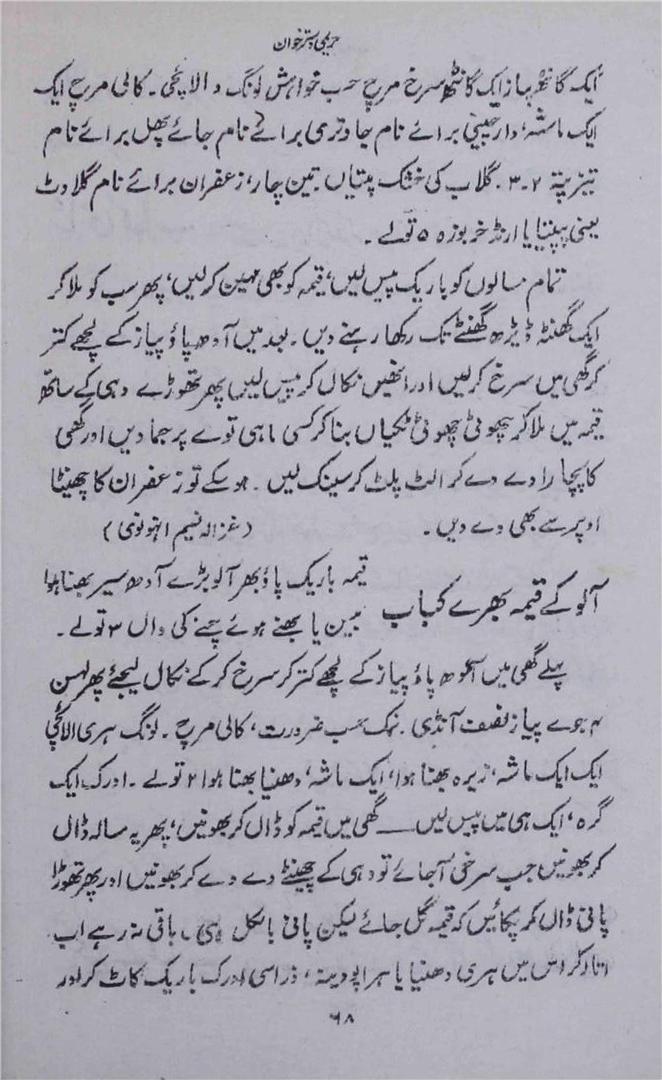 حریمی دسترخوان
ایک گانٹھ پیاز ایک گانٹھ سرخ مرچ حسب خواہش لونگ و الائچی۔ کالی مرچ ایک
ایک ماشہ، دارچینی برائے نام جاوتری برائے نام جائے پھل برائے نام
تیزپتہ ۲-۳۔ گلاب کی خشک پتیاں تین چار، زعفران برائے نام گلاوٹ
یعنی پپیتا یا ارنڈ خربوزہ ۵ تولے۔
تمام مسالوں کو باریک پیس لیں، قیمہ کو بھی مہین کرلیں، پھر سب کو ملا کر
ایک گھنٹہ ڈیڑھ گھنٹے تک رکھا رہنے دیں۔ بعد میں آدھ پاؤ پیاز کے لچھے کتر
کر گھی میں سرخ کرلیں اور انھیں نکال کر پیس لیں پھر تھوڑے دہی کے ساتھ
قیمہ میں ملا کر چھوٹی چھوٹی ٹکیاں بنا کر کسی ماہی توے پر جما دیں اور گھی
کا پچارا دے دے کر الٹ پلٹ کر سینک لیں۔ ہوسکے تو زعفران کا چھینٹا
اوپر سے بھی دے دیں۔ (غزالہ نسیم انہونوی)
آلو کے قیمہ بھرے کباب
قیمہ باریک پاؤ بھر آلو بڑے آدھ سیر بھنا ہوا
بیسن یا بھنے ہوئے چنے کی دال ۳ تولے۔
پہلے گھی میں آدھ پاؤ پیاز کے لچھے کتر کر سرخ کرکے نکال لیجئے پھر لہسن
۴ جوے پیاز نصف آنڈی۔ نمک حسب ضرورت، کالی مرچ۔ لونگ ہری الائچی
ایک ایک ماشہ، زیرہ بھنا ہوا، ایک ماشہ، دھنیا بھنا ہوا ۲ تولے۔ ادرک ایک
گرہ، ایک ہی میں پیس لیں — گھی میں قیمہ کو ڈال کر بھونیں، پھر یہ مسالہ ڈال
کر بھونیں جب سرخی آجائے تو دہی کے چھینٹے دے دے کر بھونیں اور پھر تھوڑا
پانی ڈال کر پکائیں کہ قیمہ گل جائے لیکن پانی بالکل ہی باقی نہ رہے اب
اتار کر اس میں ہری دھنیا یا ہرا پودینہ، ذرا سی ادرک باریک کاٹ کر اور
۶۸